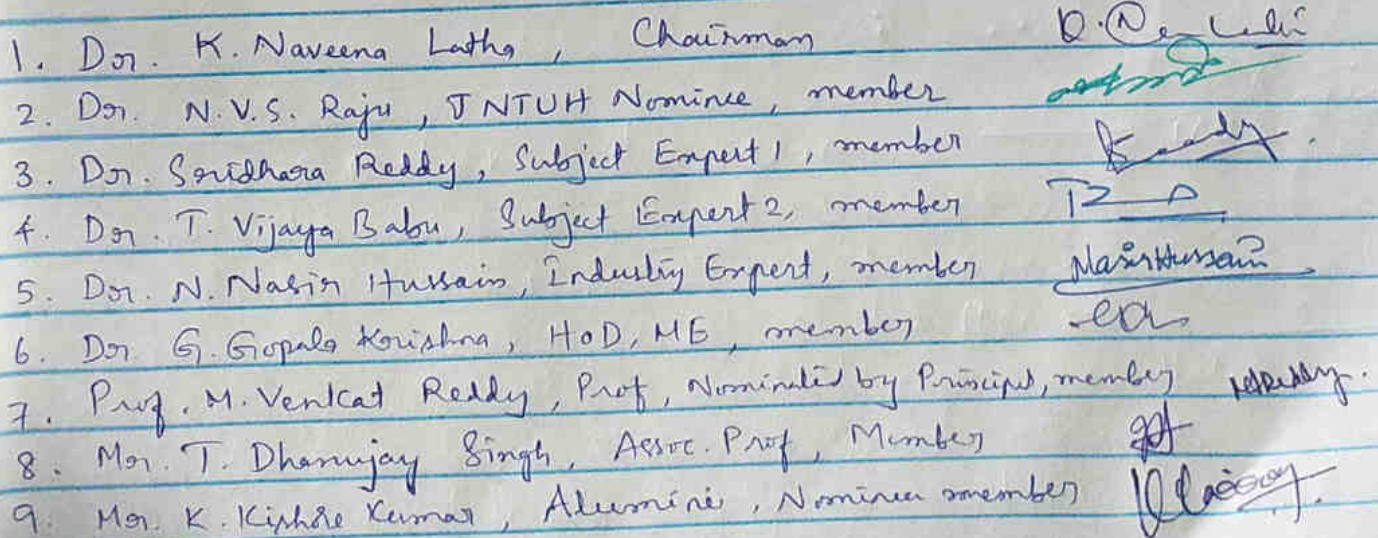 1. Dr. K. Naveena Latha, Chairman
2. Dr. N.V.S. Raju, JNTUH Nominee, member
3. Dr. Sridhara Reddy, Subject Expert 1, member
4. Dr. T. Vijaya Babu, Subject Expert 2, member
5. Dr. N. Nasir Hussain, Industry Expert, member NasirHussain
6. Dr G. Gopala Krishna, HoD, ME, member
7. Prof. M. Venkat Reddy, Prof, Nominated by Principal, member MReddy.
8. Mr. T. Dhanujay Singh, Assoc. Prof, Member
9. Mr. K. Kishore Kumar, Alumini, Nominee member